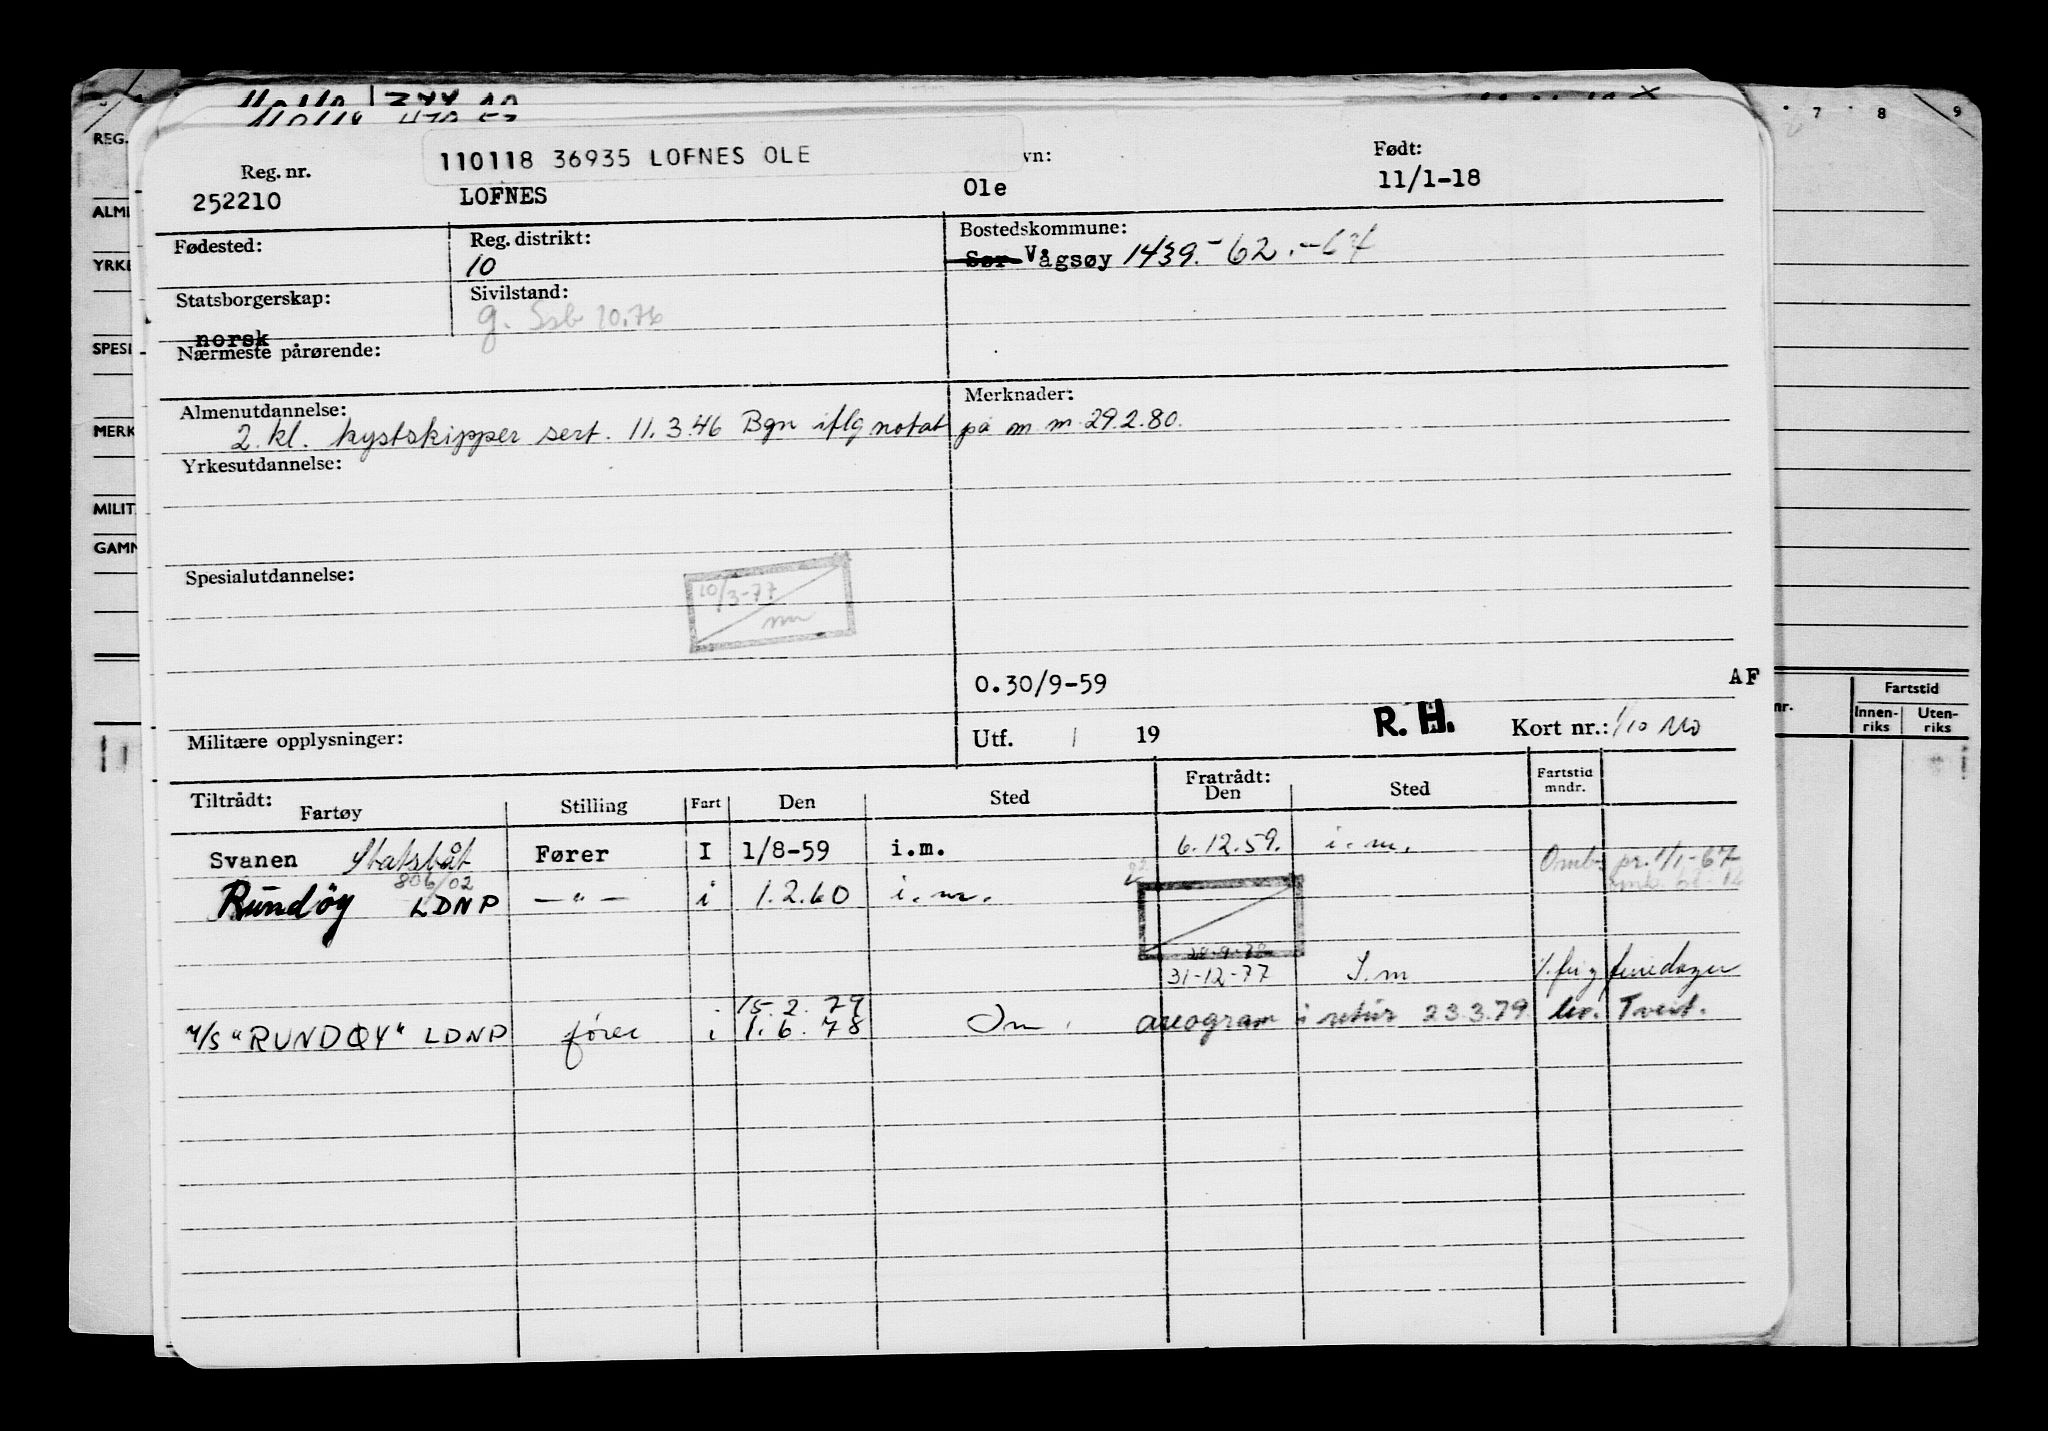 REG.
7 8 9
110118 36935 LOFNES OLE
Reg. nr. vn: Født:
252210 LOFNES Ole 11/1-18
Fødested: Reg. distrikt: Bostedskommune:
10 Sør Vågsøy 1439.- 62.-64
Statsborgerskap: Sivilstand:
norsk g. Ssb 10.76
Nærmeste pårørende:
Almenutdannelse: Merknader:
2. kl. kystskipper sert. 11.3.46 Bgn iflg notat på m.m. 29.2.80.
Yrkesutdannelse:
Spesialutdannelse:
10/3-77
0.30/9-59 AF
Militære opplysninger: Utf. / 19 R. H. Kort nr.: 1/10
Tiltrådt: Fratrådt: Fartstid
Fartøy Stilling Fart Den Sted Den Sted mndr.
Svanen Statsbåt Fører I 1/8-59 i.m. 6.12.59. i.m.
Omb. pr. 1/1-67
806/02
Rundöy LDNP —"— i 1.2.60 i.m.
28-9-78
31-12-77 I.m feriedager
15.2.79
M/S "RUNDØY" LDNP fører i 1.6.78 Im. areogram i retur 23.3.79 lev. Tveit.
ALM
YRKE
SPESI
MERK
MILIT
GAMN
nr. Fartstid
Innen-
riks Uten-
riks